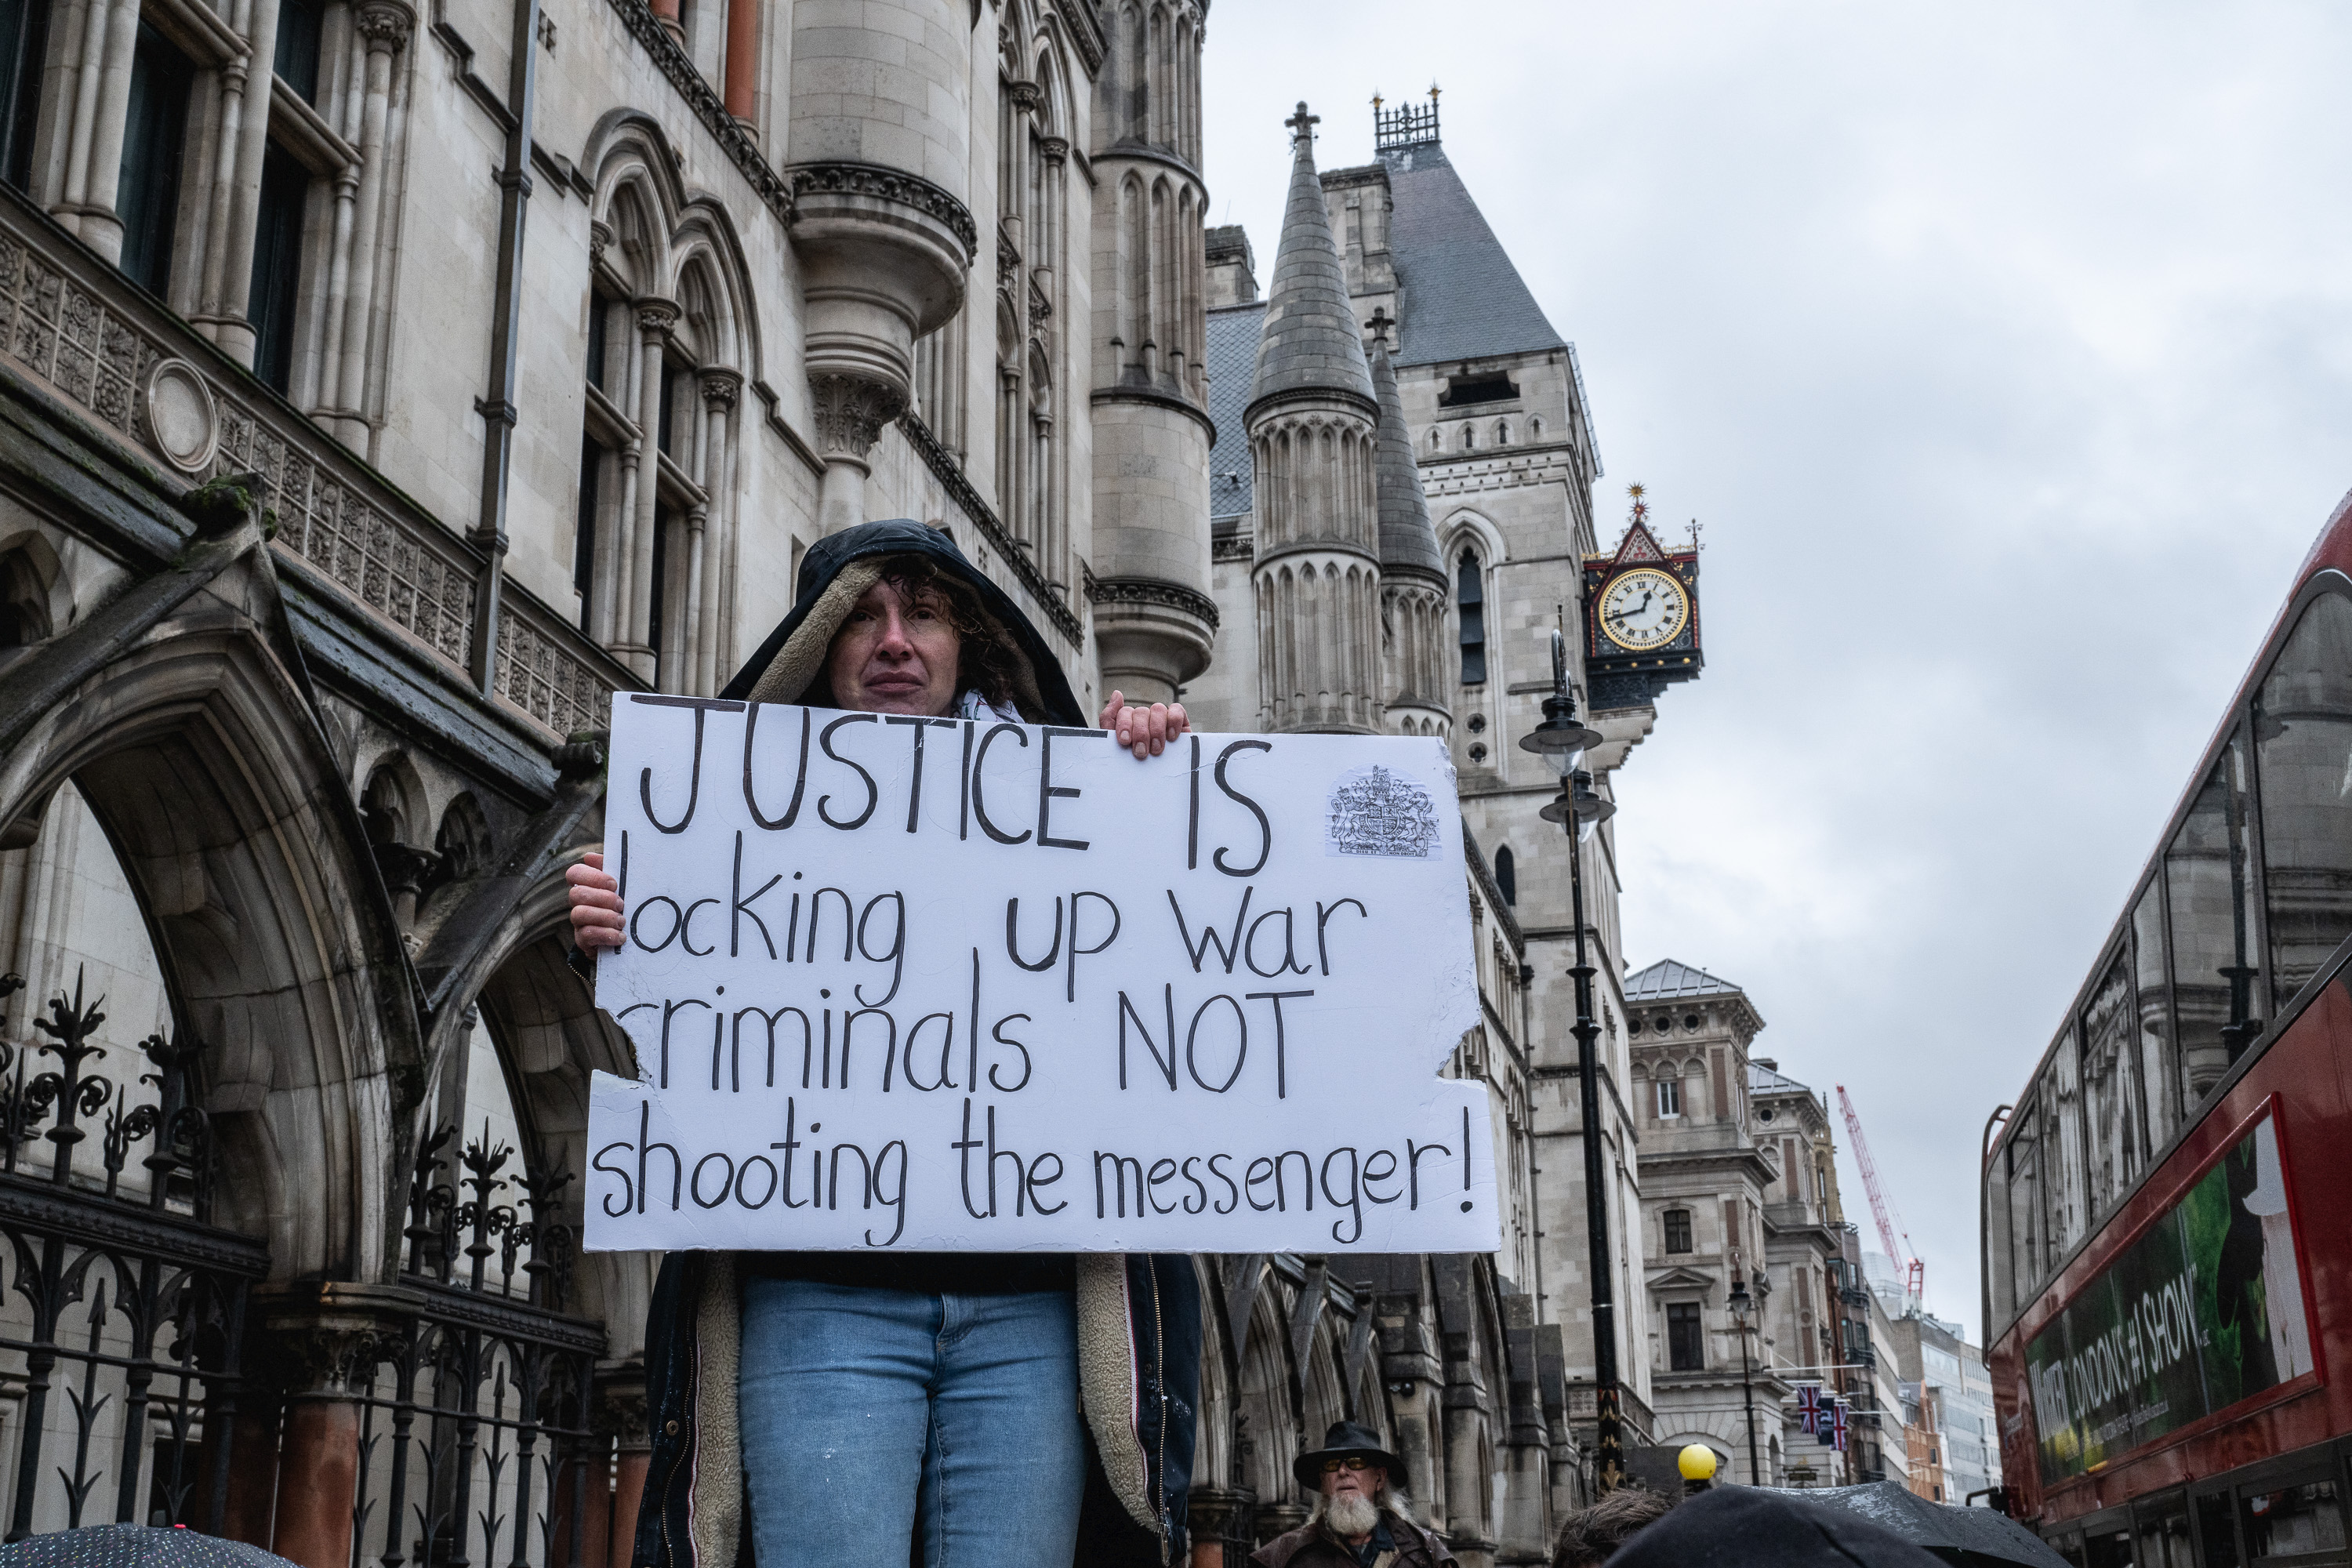 JUSTICE IS
locking up war
criminals NOT
shooting the messenger!
LONDON'S #1 SHOW